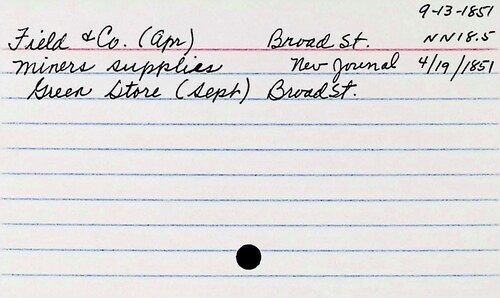 9-13-1851
Field & Co. (Apr) Broad St. NN18.5
miners supplies Nev Journal 4/19/1851
Green Store (Sept) Broad St.